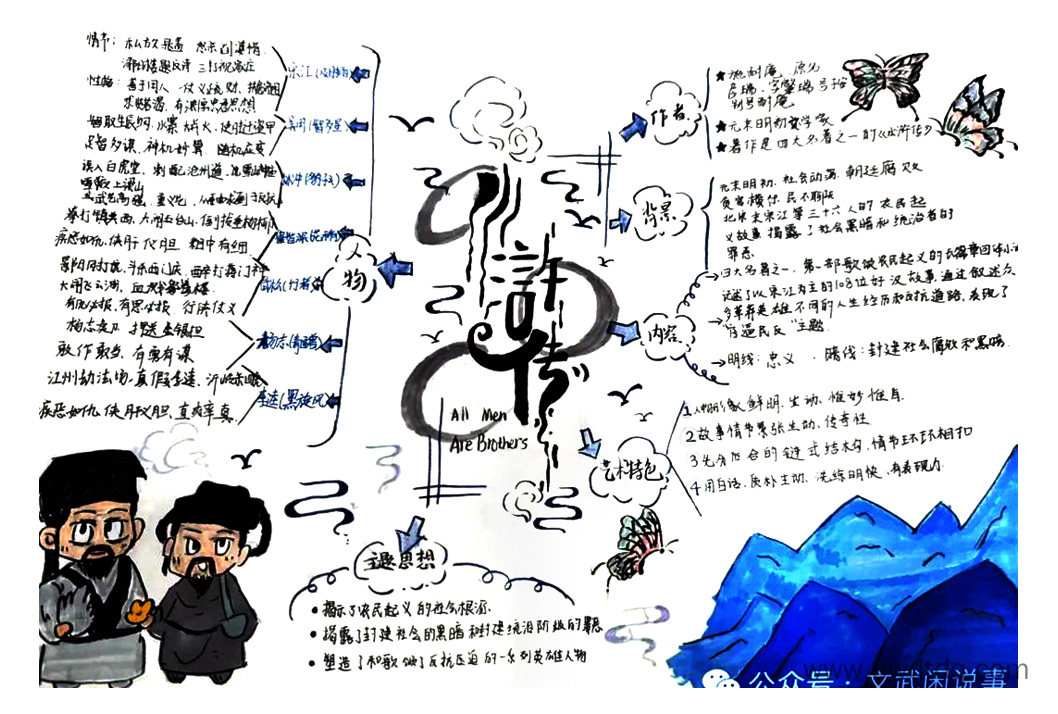 情节：私放晁盖 怒杀阎婆惜
浔阳楼题反诗 三打祝家庄
性格：善于用人 仗义疏财
宋江(及时雨)
吴用(智多星)
足智多谋，神机妙算 随机应变
误入白虎堂，刺配沧州道，
林冲(豹子头)
拳打镇关西，大闹五台山，倒拔垂杨柳
疾恶如仇 侠肝义胆 粗中有细
鲁智深(花和尚)
景阳冈打虎，斗杀西门庆，醉打蒋门神
大闹飞云浦，血溅鸳鸯楼
有仇必报，有恩必报 行侠仗义
武松(行者)
杨志卖刀 押送金银担
敢作敢当，有勇有谋
杨志(青面兽)
江州劫法场，真假李逵，沂岭杀四虎
疾恶如仇，侠肝义胆，直爽率真
李逵(黑旋风)
人物
水浒传
All Men
Are Brothers
作者
★施耐庵 原名
★元末明初文学家
★著作是四大名著之一的《水浒传》
背景
元末明初，社会动荡，朝廷腐败
贪官横行，民不聊生
北宋末宋江等三十六人的农民起
义故事 揭露了社会黑暗和统治者的
罪恶
内容
四大名著之一，第一部歌颂农民起义的长篇章回体小说
记述了以宋江为主的108位好汉故事，通过叙述众
多草莽英雄不同的人生经历和反抗道路，表现了
"官逼民反"主题
明线：忠义 暗线：封建社会腐败和黑暗
艺术特色
1.人物形象鲜明，生动，惟妙惟肖
2.故事情节紧张生动，传奇性
3.先分后合的链式结构，情节环环相扣
4.用白话，质朴生动，洗练明快，有表现力
主题思想
• 揭示了农民起义的社会根源
• 揭露了封建社会的黑暗和封建统治阶级的罪恶
• 塑造了和歌颂了反抗压迫的一系列英雄人物
公众号·文武闲说事